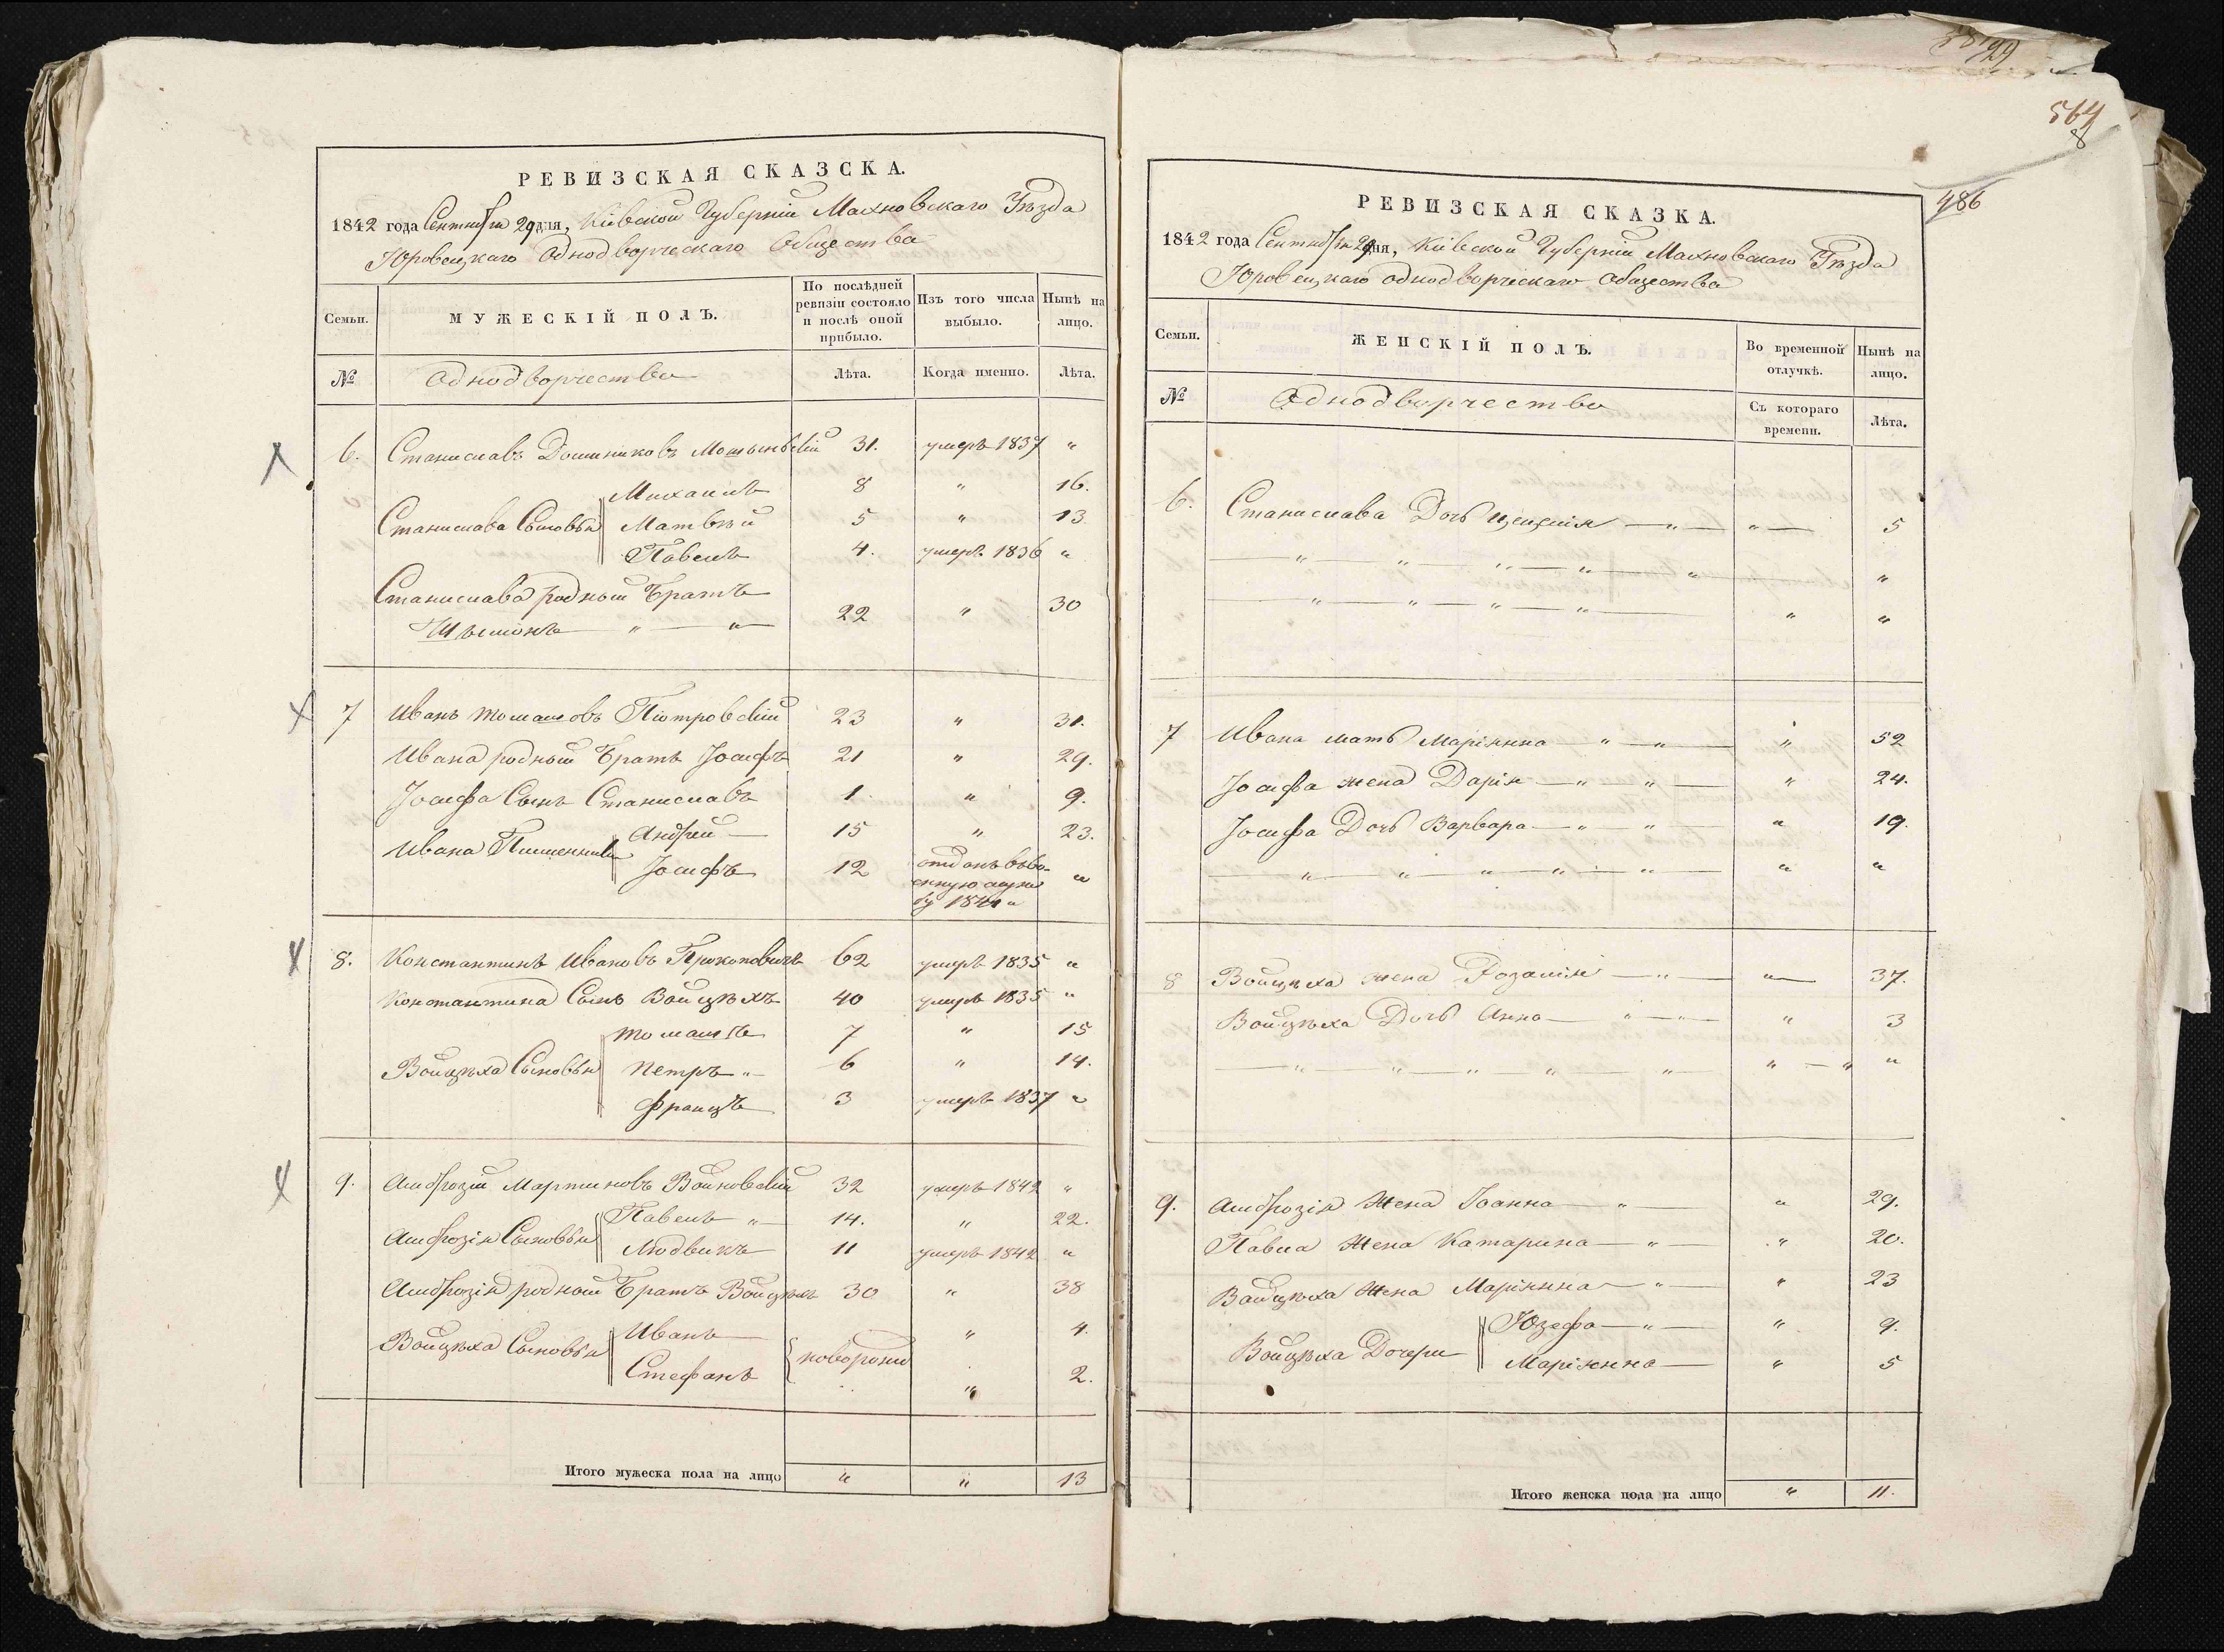 РЕВИЗСКАЯ СКАЗСКА.
1842 года Сентября 29 дня, Кіевской Губерніи Махновскаго Уѣзда
Юровецкаго Однодворческаго Общества
Семьи.
МУЖЕСКІЙ ПОЛЪ.
По послѣдней ревизіи состояло и послѣ оной прибыло.
Изъ того числа выбыло.
Нынѣ на лицо.
№
Однодворчество
Лѣта.
Когда именно.
Лѣта.
6. Станиславъ Доминиковъ 31. умеръ 1837 "
Михаилъ 8 " 16.
Станислава Сыновья Матвѣй 5 " 13
Павелъ 4. умеръ 1836 "
Станислава родный Братъ
Шымонъ " " 22 " 30
7 Иванъ Томашовъ Піотровскій 23 " 31.
Ивана родный Братъ Іосифъ 21 " 29.
Іосифа Сынъ Станиславъ 1. " 9.
Андрей 15 " 23.
Ивана Племенники
Іосифъ 12 отданъ въ во-
енную служ "
бу 1841
8. Константинъ Ивановъ Прокоповичъ 62 умеръ 1835 "
Константина Сынъ Войцѣхъ 40 умеръ 1835 "
Томашъ 7 " 15
Войцѣха Сыновья Петръ " 6 " 14.
Францъ 3 умеръ 1837 "
9. Амброзій Мартиновъ Войновскій 32 умеръ 1842 "
Павелъ " 14. " 22.
Амброзія Сыновья Людвикъ 11 умеръ 1842 "
Амброзія родный Братъ Войцѣхъ 30 " 38
Иванъ " 4.
Войцѣха Сыновья новорожд
Стефанъ " 2.
Итого мужеска пола на лицо " " 13
564
8
486
РЕВИЗСКАЯ СКАЗКА.
1842 года Сентября 29 дня, Кіевской Губерніи Махновскаго Уѣзда
Юровецкаго однодворческаго Общества
Семьи.
ЖЕНСКІЙ ПОЛЪ.
Во временной отлучкѣ.
Нынѣ на лицо.
№
Однодворчество
Съ котораго времени.
Лѣта.
6. Станислава Дочь Цецелія " " 5
" " " " " "
" " " " " "
7 Ивана мать Маріянна " " " 52
Іосифа жена Дарія " " " 24.
Іосифа Дочь Варвара " " " 19.
" " " " " " "
8 Войцѣха жена Розалія " " 37.
Войцѣха Дочь Анна " " " 3
" " " " " " " "
9. Амброзія Жена Іоанна " " 29.
Павла Жена Катарина " " 20.
Войцѣха Жена Маріянна " " 23
Юзефа " " 9.
Войцѣха Дочери
Маріянна " 5
Итого женска пола на лицо " 11.